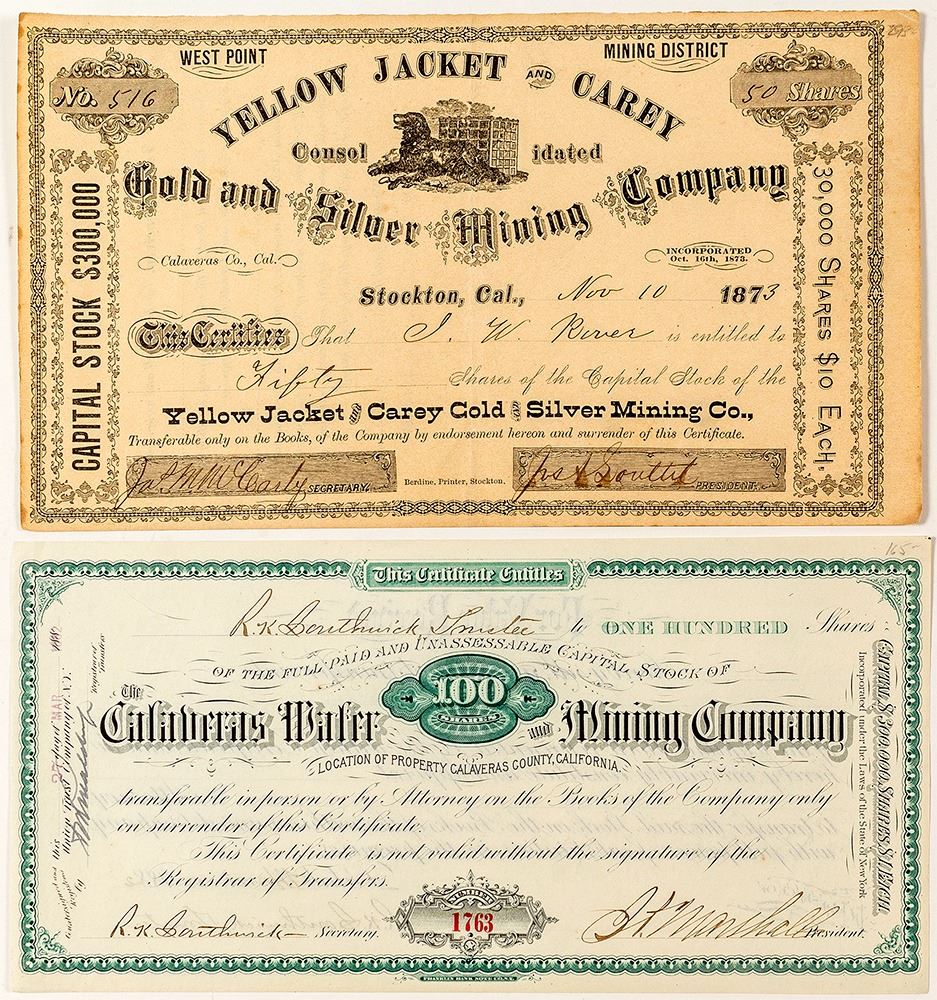 WEST POINT
MINING DISTRICT
No. 516
50 Shares
YELLOW JACKET AND CAREY
Consolidated
Gold and Silver Mining Company
Calaveras Co., Cal.
INCORPORATED
Oct. 16th, 1873.
CAPITAL STOCK $300,000
30,000 SHARES $10 EACH,
Stockton, Cal., Nov 10 1873
This Certifies That J. W. River is entitled to
Fifty Shares of the Capital Stock of the
Yellow Jacket and Carey Gold and Silver Mining Co.,
Transferable only on the Books, of the Company by endorsement hereon and surrender of this Certificate.
Jas. M McCarty SECRETARY.
Berdine, Printer, Stockton.
PRESIDENT.
165-
This Certificate Entitles
R. K. Southwick Trustee to ONE HUNDRED Shares
OF THE FULL PAID AND UNASSESSABLE CAPITAL STOCK OF
The
Calaveras Water and Mining Company
100
SHARES
LOCATION OF PROPERTY CALAVERAS COUNTY, CALIFORNIA.
transferable in person or by Attorney on the Books of the Company only
on surrender of this Certificate.
This Certificate is not valid without the signature of the
Registrar of Transfers.
R. K. Southwick Secretary.
NUMBER
1763
President.
Incorporated under the Laws of the State of New York
FRANKLIN BANK NOTE CO. N.Y.